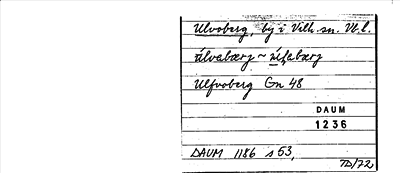 Ulvoberg, by i Vilh. sn. Vb. l.
ùlvabærg ~ ùlfabærg
Ulfvoberg Gn 48
DAUM
1236
DAUM 1186 s 53,
TD/72